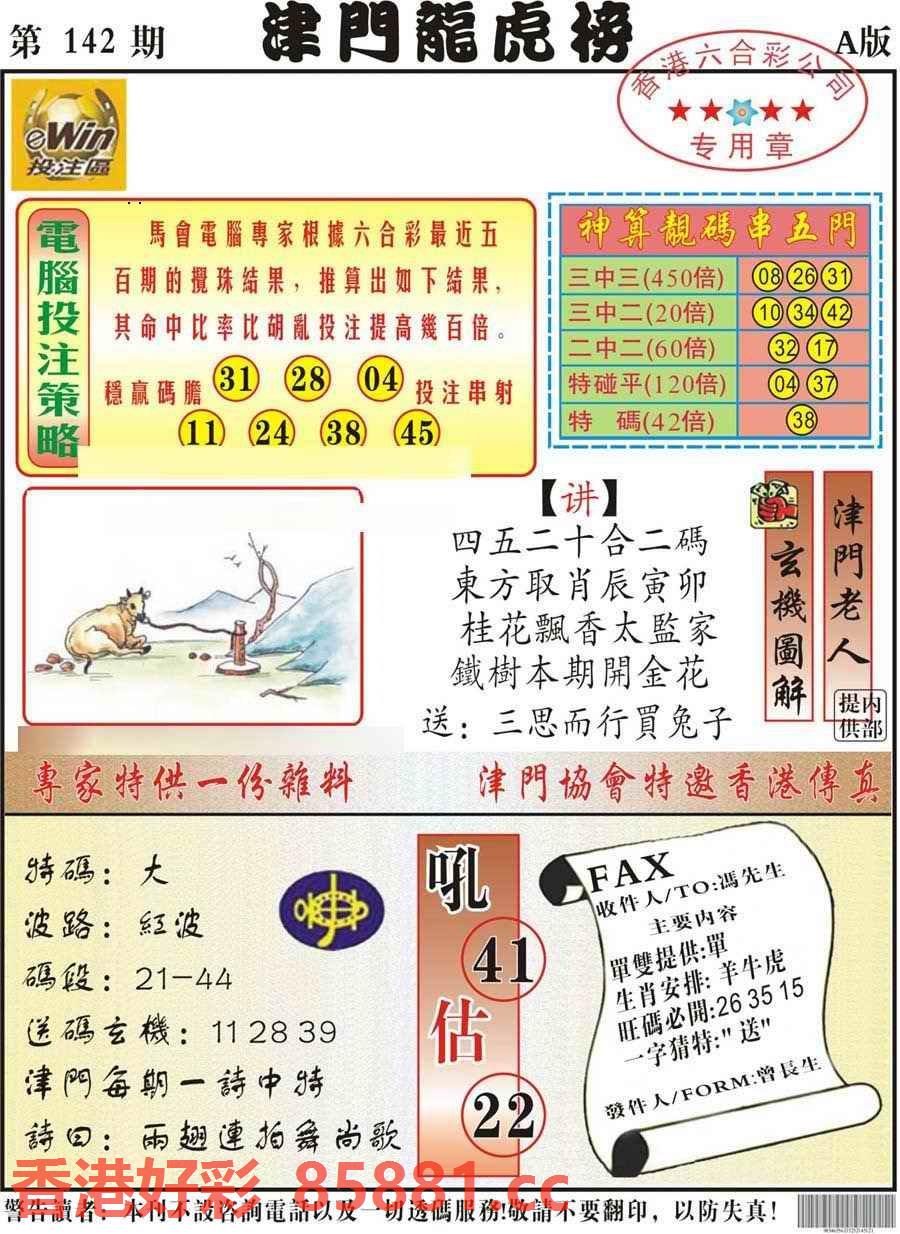 第 142 期
津門龍虎榜
A版
香港六合彩公司
★★★★
专用章
eWin
投注區
電腦投注策略
馬會電腦專家根據六合彩最近五
百期的攪珠結果，推算出如下結果，
其命中比率比胡亂投注提高幾百倍。
穩贏碼膽 31 28 04 投注串射
11 24 38 45
神算靚碼串五門
三中三(450倍) 08 26 31
三中二(20倍) 10 34 42
二中二(60倍) 32 17
特碰平(120倍) 04 37
特 碼(42倍) 38
【讲】
四五二十合二碼
東方取肖辰寅卯
桂花飄香太監家
鐵樹本期開金花
送：三思而行買兔子
玄機圖解
津門老人
提内
供部
專家特供一份雜料
津門協會特邀香港傳真
特碼：大
波路：紅波
碼段：21-44
送碼玄機：11 28 39
津門每期一詩中特
詩曰：兩翅連拍舞尚歌
吼
41
估
22
FAX
收件人/TO:馮先生
主要内容
單雙提供:單
生肖安排: 羊牛虎
旺碼必開:26 35 15
一字猜特:"送"
發件人/FORM:曾長生
香港好彩 85881.cc
警告讀者：本刊不設咨詢電話以及一切透碼服務!敬請不要翻印，以防失真!